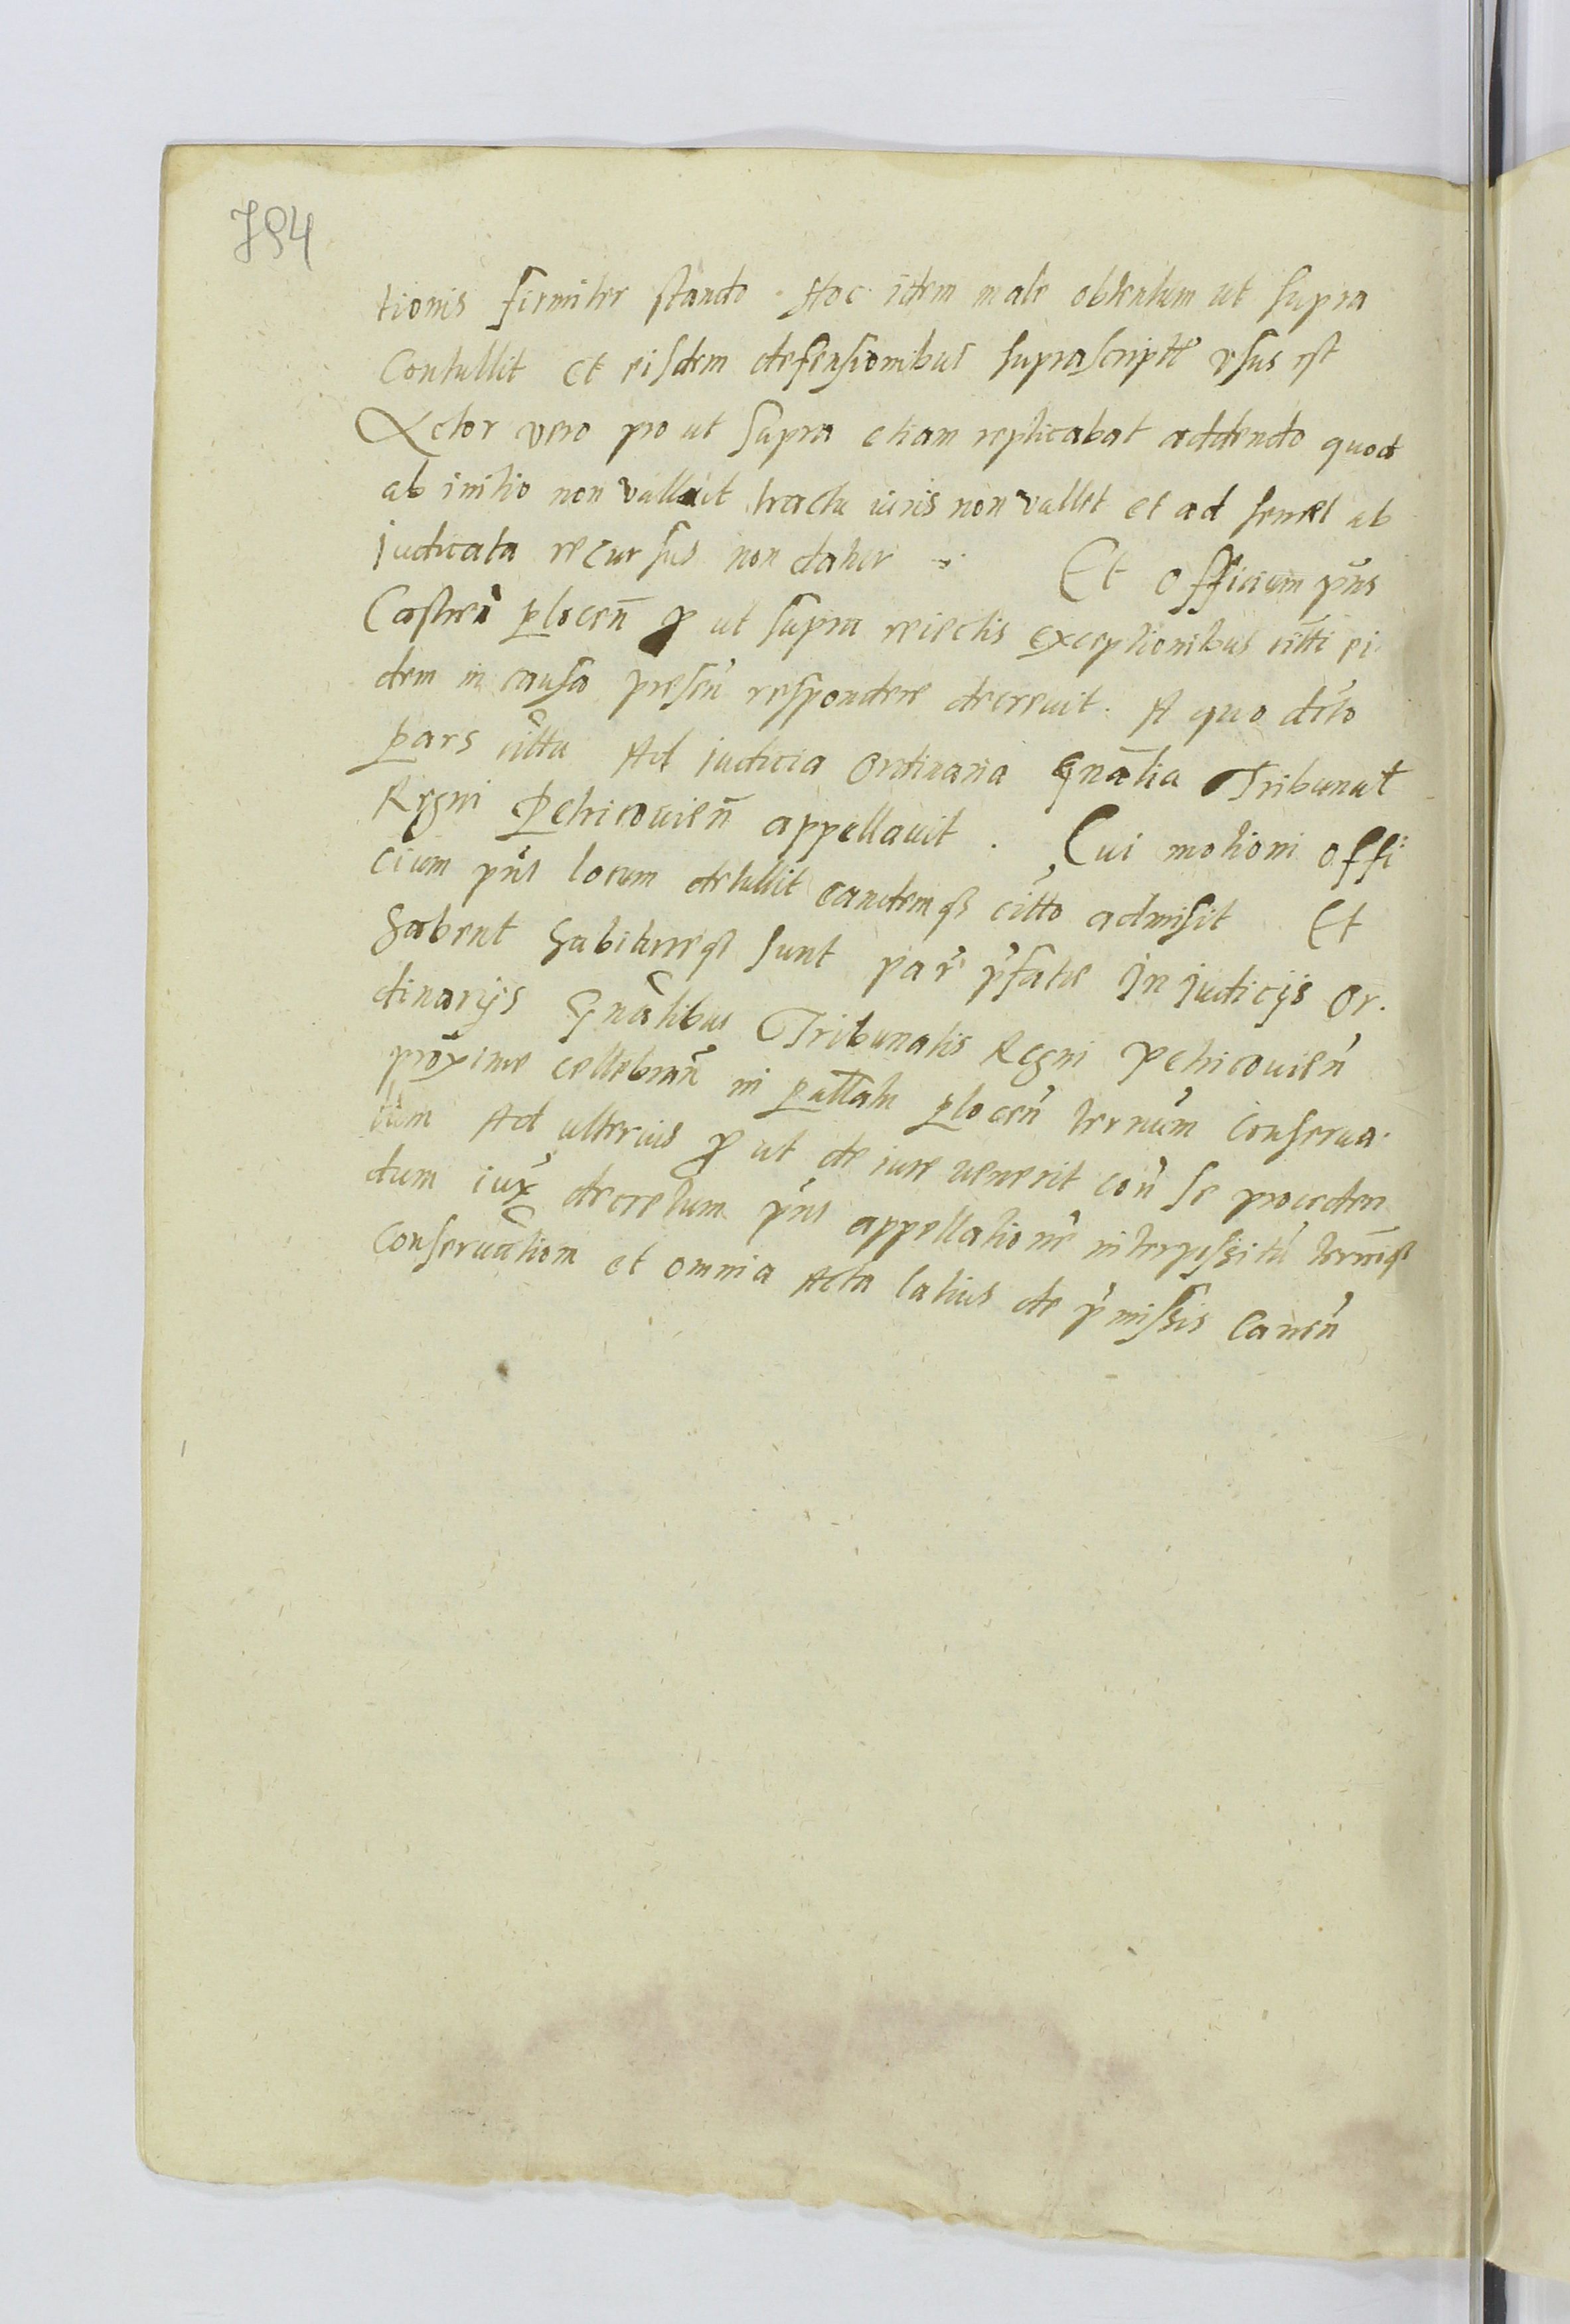 794
tionis firmiter stando. Hoc idem male obtentum ut supra
Contullit et eisdem defensionibus suprascript usus est
Actor vero pro ut supra etiam replicabat addendo quod
ab initio non valluit tractu iuris non vallet et ad semel ab
Judicata recursus non datur Et officium pñs
Castreñ ploceñ p ut supra reiectis exceptionibus citti ei
dem in causa preseñ respondere decrevit. A quo dcto
pars citta Ad judicia Ordinaria Gnalia Tribunal
Regni Petricovieñ appellavit. Cui motioni offi
cium pñs locum detullit eandemq citto admisit Et
habent habitureq sunt par pfatae In Judicijs Or.
dinarijs Gnalibus Tribunalis Regni Petricovieñ
proxime cellebrañ in pallatu ploceñ termin conserva.
tum Ad ulterius p ut de iure venerit coñ se proceden
dum iux decretum pñs appellatione interpossitu termiq
Conservation et omnia Acta latius de pmissis Caneñ